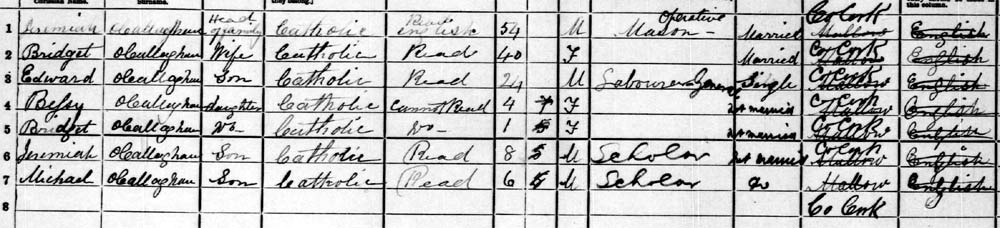 Christian Name. Surname.
1 Jeremiah O'Callaghan Head of family Catholic Read english 54 M Operative Mason Married Co Cork Mallow English
2 Bridget O'Callaghan Wife Catholic Read 40 F Married Co Cork Mallow English
3 Edward O'Callaghan Son Catholic Read 24 M Labourer General Single Co Cork Mallow English
4 Betsy O'Callaghan daughter Catholic Cannot Read 4 F Not married Co Cork Mallow English
5 Bridget O'Callaghan Do- Catholic Do- 1 F Not married Co Cork Mallow English
6 Jeremiah O'Callaghan Son Catholic Read 8 M Scholar Not married Co Cork Mallow English
7 Michael O'Callaghan Son Catholic Read 6 M Scholar Do Mallow English
8 Co Cork